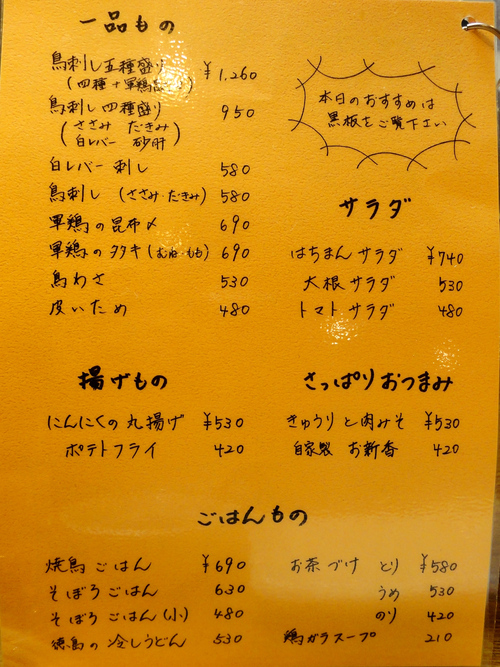 一品もの
鳥刺し五種盛り ¥1,260
(四種+軍鶏
鳥刺し四種盛り 950
(ささみ たたきみ
白レバー 砂肝)
白レバー刺し 580
鳥刺し (ささみ・たたきみ) 580
軍鶏の昆布〆 690
軍鶏のタタキ(むね・もも) 690
鳥わさ 530
皮いため 480
本日のおすすめは
黒板をご覧下さい
サラダ
はちまんサラダ ¥740
大根サラダ 530
トマトサラダ 480
揚げもの
にんにくの丸揚げ ¥530
ポテトフライ 420
さっぱりおつまみ
きゅうりと肉みそ ¥530
自家製 お新香 420
ごはんもの
焼鳥ごはん ¥690
そぼろごはん 630
そぼろごはん(小) 480
徳島の冷しうどん 530
お茶づけ とり ¥580
うめ 530
のり 420
鶏ガラスープ 210